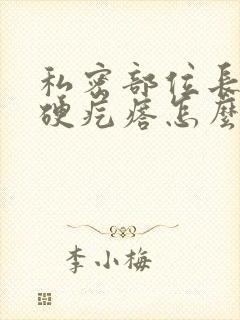 私密部位長
硬疙瘩怎麼
李小梅